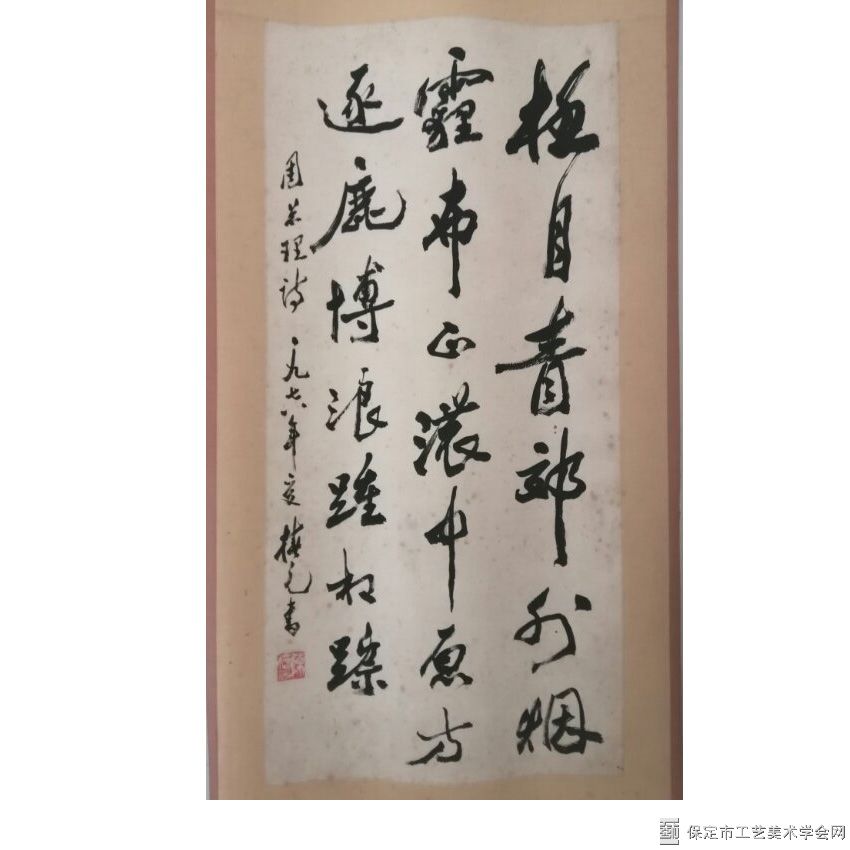 極目青郊外烟
霾布正濃中原方
逐鹿博浪踵相踪
周总理詩 一九七八年夏 書
保定市工艺美术学会网